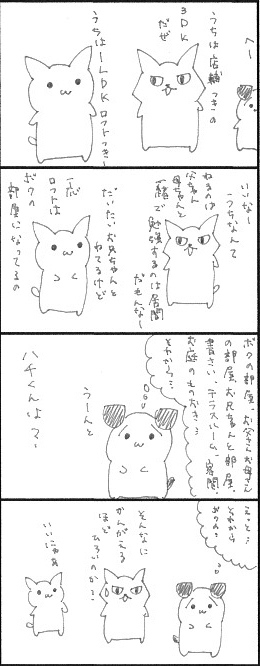 へー
うちは店舗つきの
3DK
だぜ
うちは1LDKロフトつきー
いいなー
うちなんて
ねるのは
父ちゃん
母ちゃんと
一緒で
勉強するのは居間
だもんなー
だいたいお兄ちゃんと
ねてるけど
一応
ロフトは
ボクの
部屋になってるの
ボクの部屋、お父さんお母さん
の部屋、お兄ちゃんと部屋、
書さい、テラスルーム、客間、
お庭のものおき…
それから…
うーんと
ハチくんはマ…
えっと…
それから
おくの…
そんなに
かんがえる
ほど
ひろいのか…
いいにゃあ